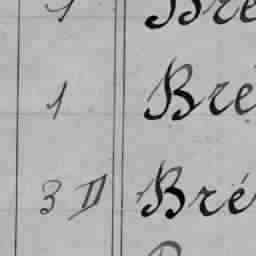 1 Bre
1 Bré
3 II Bré